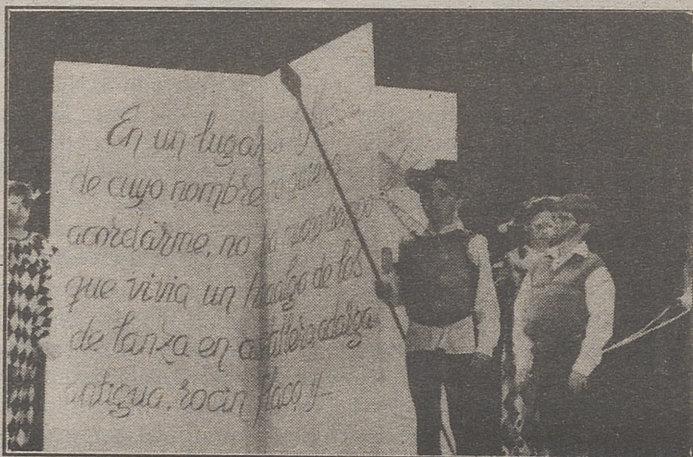 En un lugar
de cuyo nombre no quiero
acordarme, no ha
que vivía un hidalgo de los
de lanza en astillero adarga
antigua, rocin flaco y